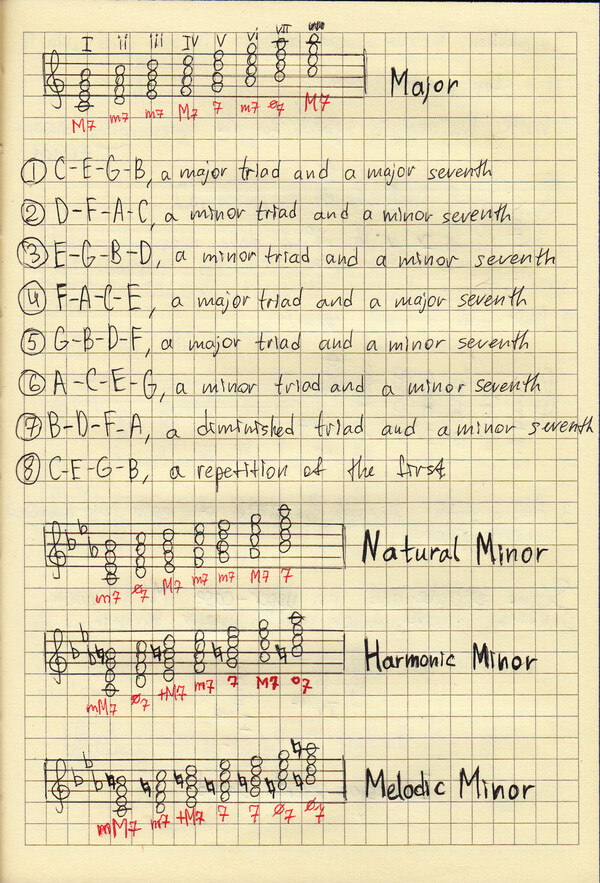 I ii iii IV V vi vii
Major
M7 m7 m7 M7 7 m7 ø7 M7
① C-E-G-B, a major triad and a major seventh
② D-F-A-C, a minor triad and a minor seventh
③ E-G-B-D, a minor triad and a minor seventh
④ F-A-C-E, a major triad and a major seventh
⑤ G-B-D-F, a major triad and a minor seventh
⑥ A-C-E-G, a minor triad and a minor seventh
⑦ B-D-F-A, a diminished triad and a minor seventh
⑧ C-E-G-B, a repetition of the first
Natural Minor
m7 ø7 M7 m7 m7 M7 7
Harmonic Minor
mM7 ø7 +M7 m7 7 M7 o7
Melodic Minor
mM7 m7 +M7 7 7 ø7 ø7